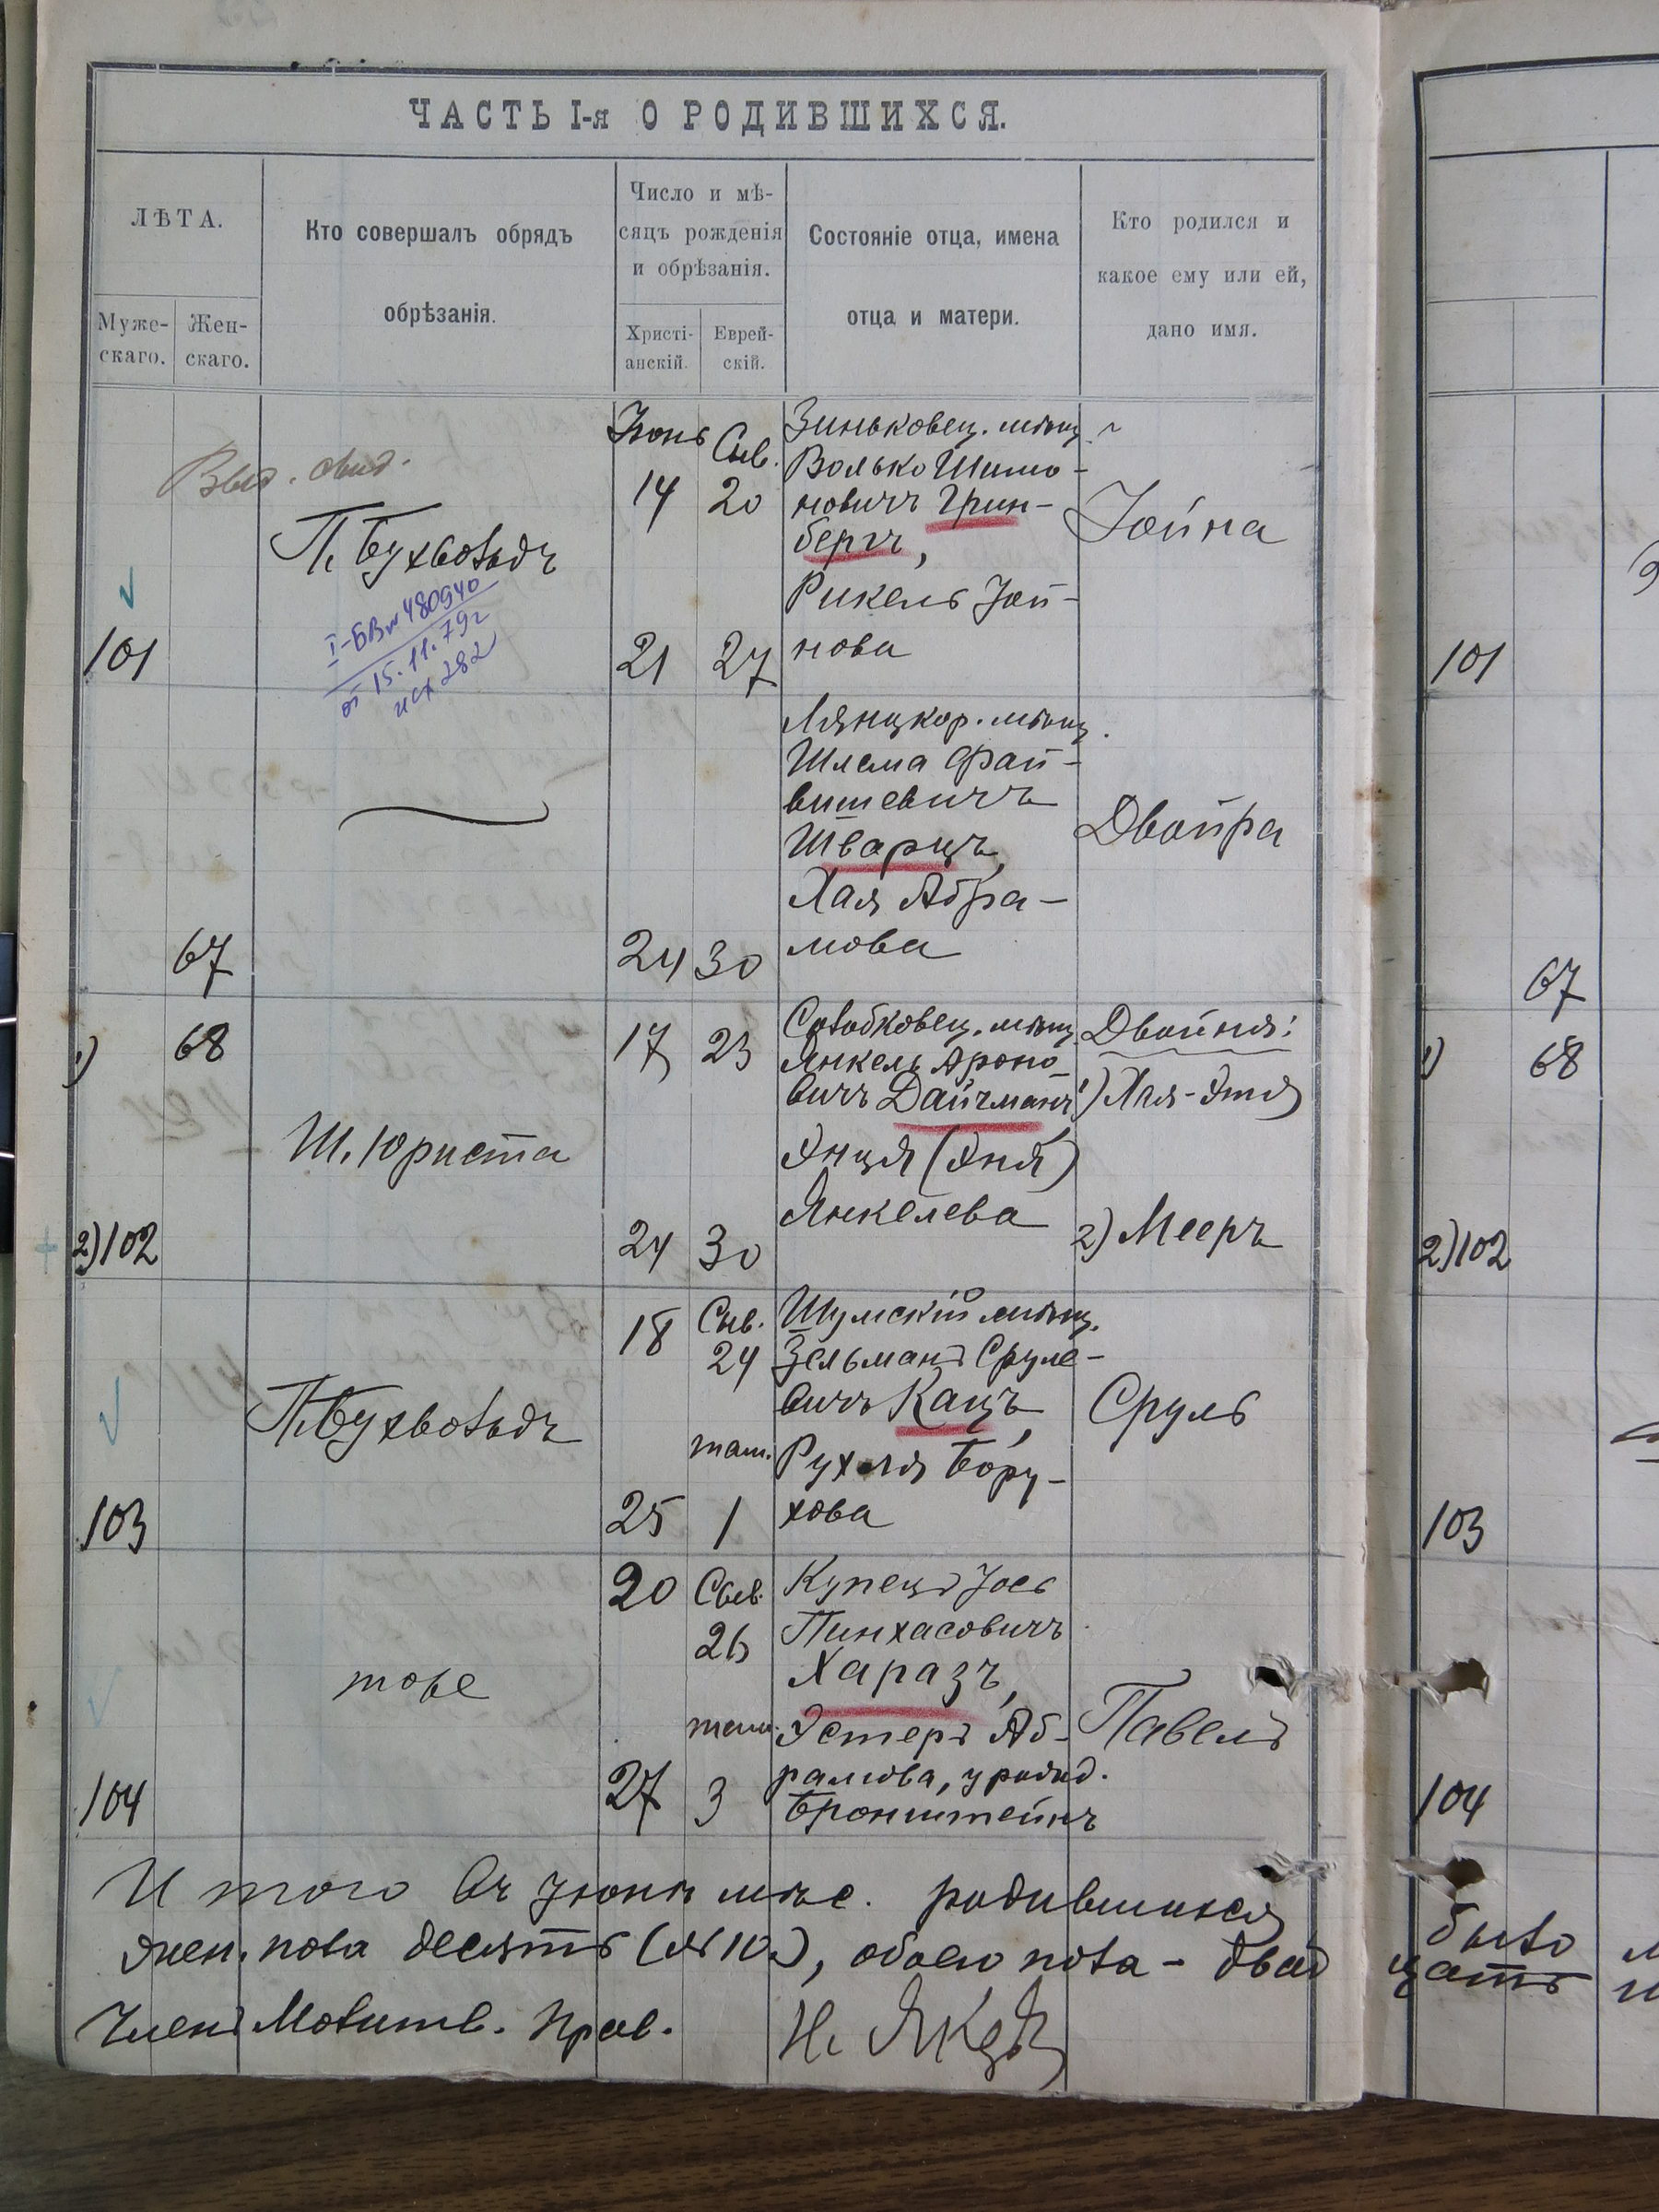 ЧАСТЬ I-я О РОДИВШИХСЯ.
ЛѢТА.
Муже-
скаго.
Жен-
скаго.
Кто совершалъ обрядъ
обрѣзанія.
Число и мѣ-
сяцъ рожденія
и обрѣзанія.
Христі-
анскій.
Еврей-
скій.
Состояніе отца, имена
отца и матери.
Кто родился и
какое ему или ей,
дано имя.
Выд. свид.
П. Бухволъдъ
I-БВ № 480940
от 15.11.79г
исх 282
101
Іюнь
14
21
Сив.
20
27
Зиньковец. мѣщ.
Волько Шимо-
новичъ Грин-
бергъ,
Рикель Іой-
нова
Іойна
101
67
24
30
Лянцкор. мѣщ.
Шлема Фай-
вишевичъ
Шварцъ,
Хая Абра-
мова
Двойра
67
1)
68
2) 102
Ш. Юриста
17
24
23
30
Солобковец. мѣщ.
Янкель Ароно-
вичъ Дайчманъ,
Энця (Эня)
Янкелева
Двойня:
1) Хая-Этя
2) Мееръ
1)
68
2) 102
103
П. Бухволъдъ
18
25
Сив.
24
там.
1
Шумскій мѣщ.
Зельманъ Сруле-
вичъ Кацъ,
Рухля Бору-
хова
Сруль
103
104
тоже
20
27
Сив.
26
там.
3
Купецъ Іось
Пинхасовичъ
Харазъ,
Эстеръ Аб-
рамова, урожд.
Бронштейнъ
Павелъ
104
Итого въ Іюнѣ мѣс. родившихся было
жен. пола десять (№ 10), обоего пола - двадцать
Членъ Молитв. Прав.